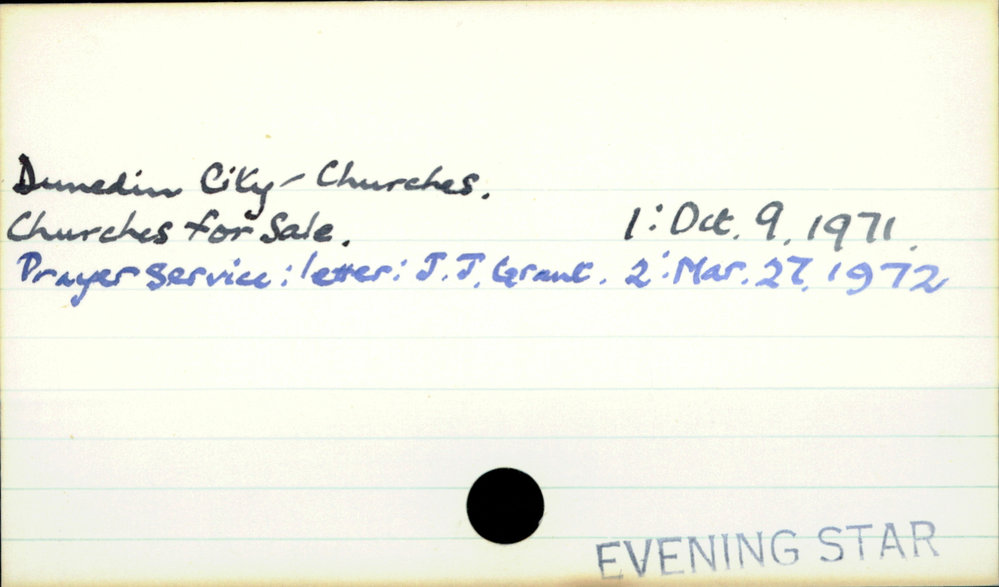 Dunedin City - Churches.
Churches for Sale. 1: Oct. 9, 1971.
Prayer Service: letter: J. J. Grant. 2: Mar. 27, 1972
EVENING STAR